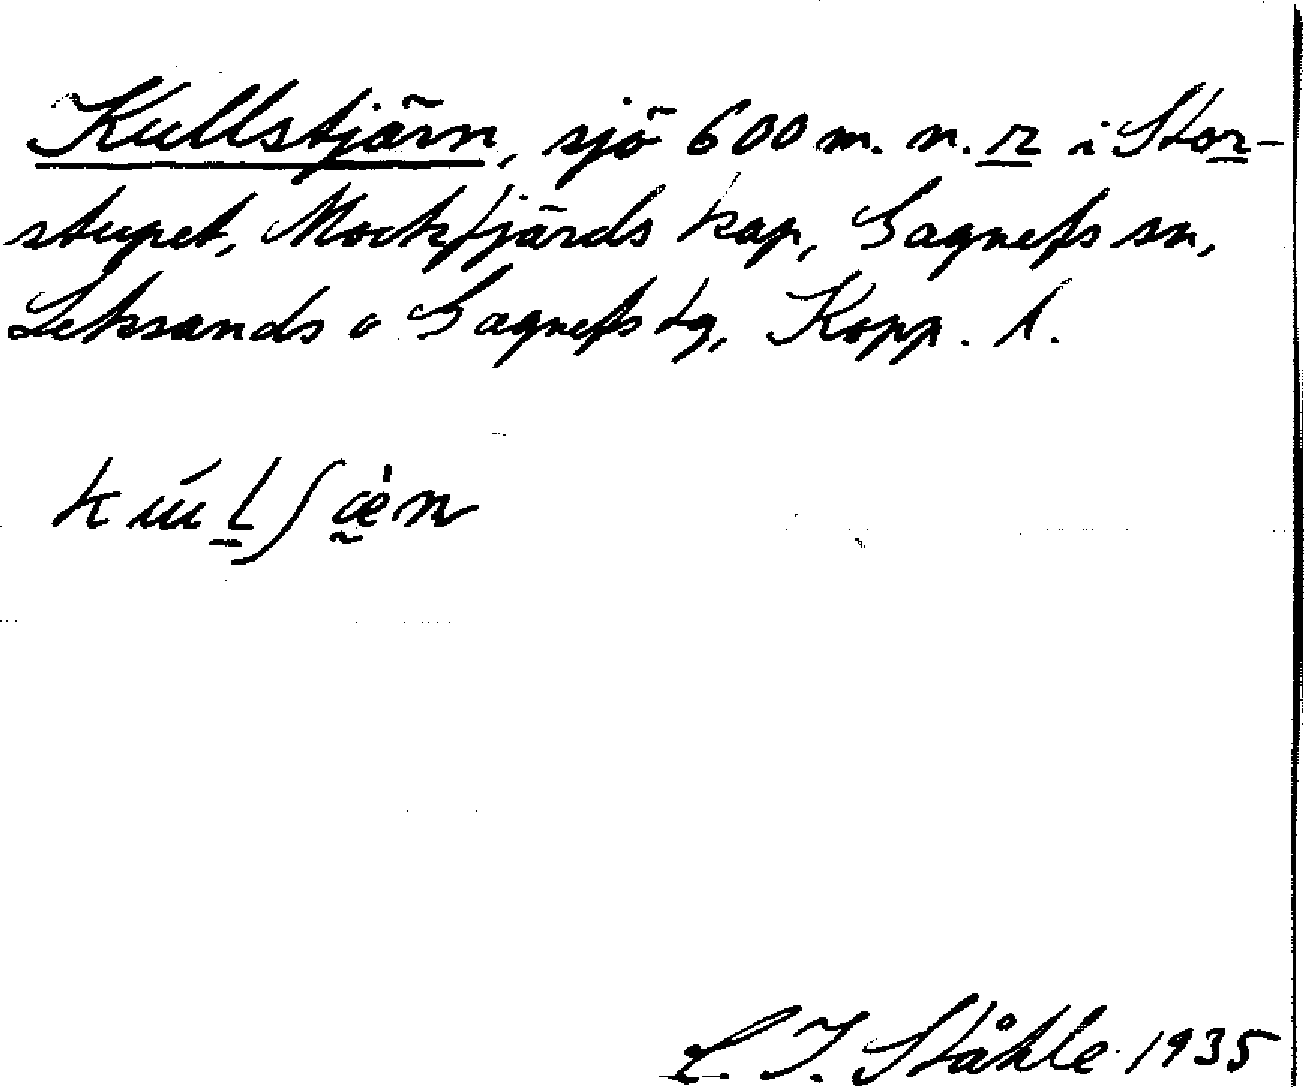 Kullstjärn, sjö 600 m. n. r i Stor-
stupet, Mockfjärds kap, Gagnefs sn,
Leksands o Gagnefs tg, Kopp. l.
C. I. Ståhle 1935